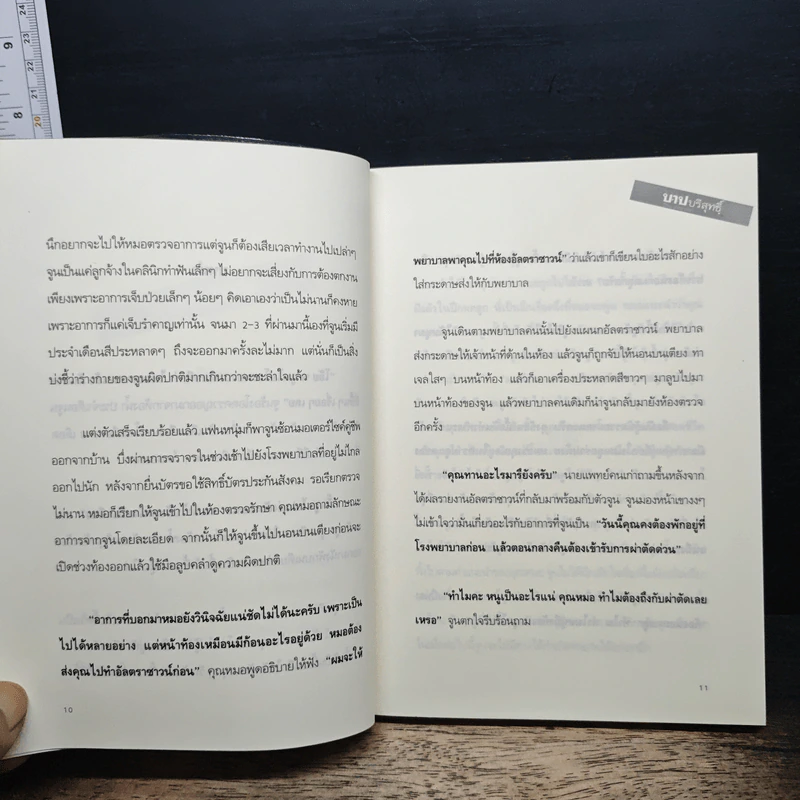 นึกอยากจะไปให้หมอตรวจอาการแต่จูนก็ต้องเสียเวลาทำงานไปเปล่าๆ
จูนเป็นแค่ลูกจ้างในคลินิกทำฟันเล็กๆ ไม่อยากจะเสี่ยงกับการต้องตกงาน
เพียงเพราะอาการเจ็บป่วยเล็กๆ น้อยๆ คิดเอาเองว่าเป็นไม่นานก็คงหาย
เพราะอาการก็แค่เจ็บรำคาญเท่านั้น จนมา 2-3 ที่ผ่านมานี้เองที่จูนเริ่มมี
ประจำเดือนสีประหลาดๆ ถึงจะออกมาครั้งละไม่มาก แต่นั่นก็เป็นสิ่ง
บ่งชี้ว่าร่างกายของจูนผิดปกติมากเกินกว่าจะชะล่าใจแล้ว
แต่งตัวเสร็จเรียบร้อยแล้ว แฟนหนุ่มก็พาจูนซ้อนมอเตอร์ไซค์คู่ชีพ
ออกจากบ้าน บึ่งผ่านการจราจรในช่วงเช้าไปยังโรงพยาบาลที่อยู่ไม่ไกล
ออกไปนัก หลังจากยื่นบัตรขอใช้สิทธิ์บัตรประกันสังคม รอเรียกตรวจ
ไม่นาน หมอก็เรียกให้จูนเข้าไปในห้องตรวจรักษา คุณหมอถามลักษณะ
อาการจากจูนโดยละเอียด จากนั้นก็ให้จูนขึ้นไปนอนบนเตียงก่อนจะ
เปิดช่วงท้องออกแล้วใช้มือลูบคลำดูความผิดปกติ
“อาการที่บอกมาหมอยังวินิจฉัยแน่ชัดไม่ได้นะครับ เพราะเป็น
ไปได้หลายอย่าง แต่หน้าท้องเหมือนมีก้อนอะไรอยู่ด้วย หมอต้อง
ส่งคุณไปทำอัลตราซาวน์ก่อน” คุณหมอพูดอธิบายให้ฟัง “ผมจะให้
10
บาปบริสุทธิ์
พยาบาลพาคุณไปที่ห้องอัลตราซาวน์” ว่าแล้วเขาก็เขียนใบอะไรสักอย่าง
ใส่กระดาษส่งให้กับพยาบาล
จูนเดินตามพยาบาลคนนั้นไปยังแผนกอัลตราซาวน์ พยาบาล
ส่งกระดาษให้เจ้าหน้าที่ด้านในห้อง แล้วจูนก็ถูกจับให้นอนบนเตียง ทา
เจลใสๆ บนหน้าท้อง แล้วก็เอาเครื่องประหลาดสีขาวๆ มาลูบไปมา
บนหน้าท้องของจูน แล้วพยาบาลคนเดิมก็นำจูนกลับมายังห้องตรวจ
อีกครั้ง
“คุณทานอะไรมารึยังครับ” นายแพทย์คนเก่าถามขึ้นหลังจาก
ได้ผลรายงานอัลตราซาวน์ที่กลับมาพร้อมกับตัวจูน จูนมองหน้าเขางงๆ
ไม่เข้าใจว่ามันเกี่ยวอะไรกับอาการที่จูนเป็น “วันนี้คุณคงต้องพักอยู่ที่
โรงพยาบาลก่อน แล้วตอนกลางคืนต้องเข้ารับการผ่าตัดด่วน”
“ทำไมคะ หนูเป็นอะไรแน่ คุณหมอ ทำไมต้องถึงกับผ่าตัดเลย
เหรอ” จูนตกใจรีบร้อนถาม
11
9
8
24
23
22
21
20